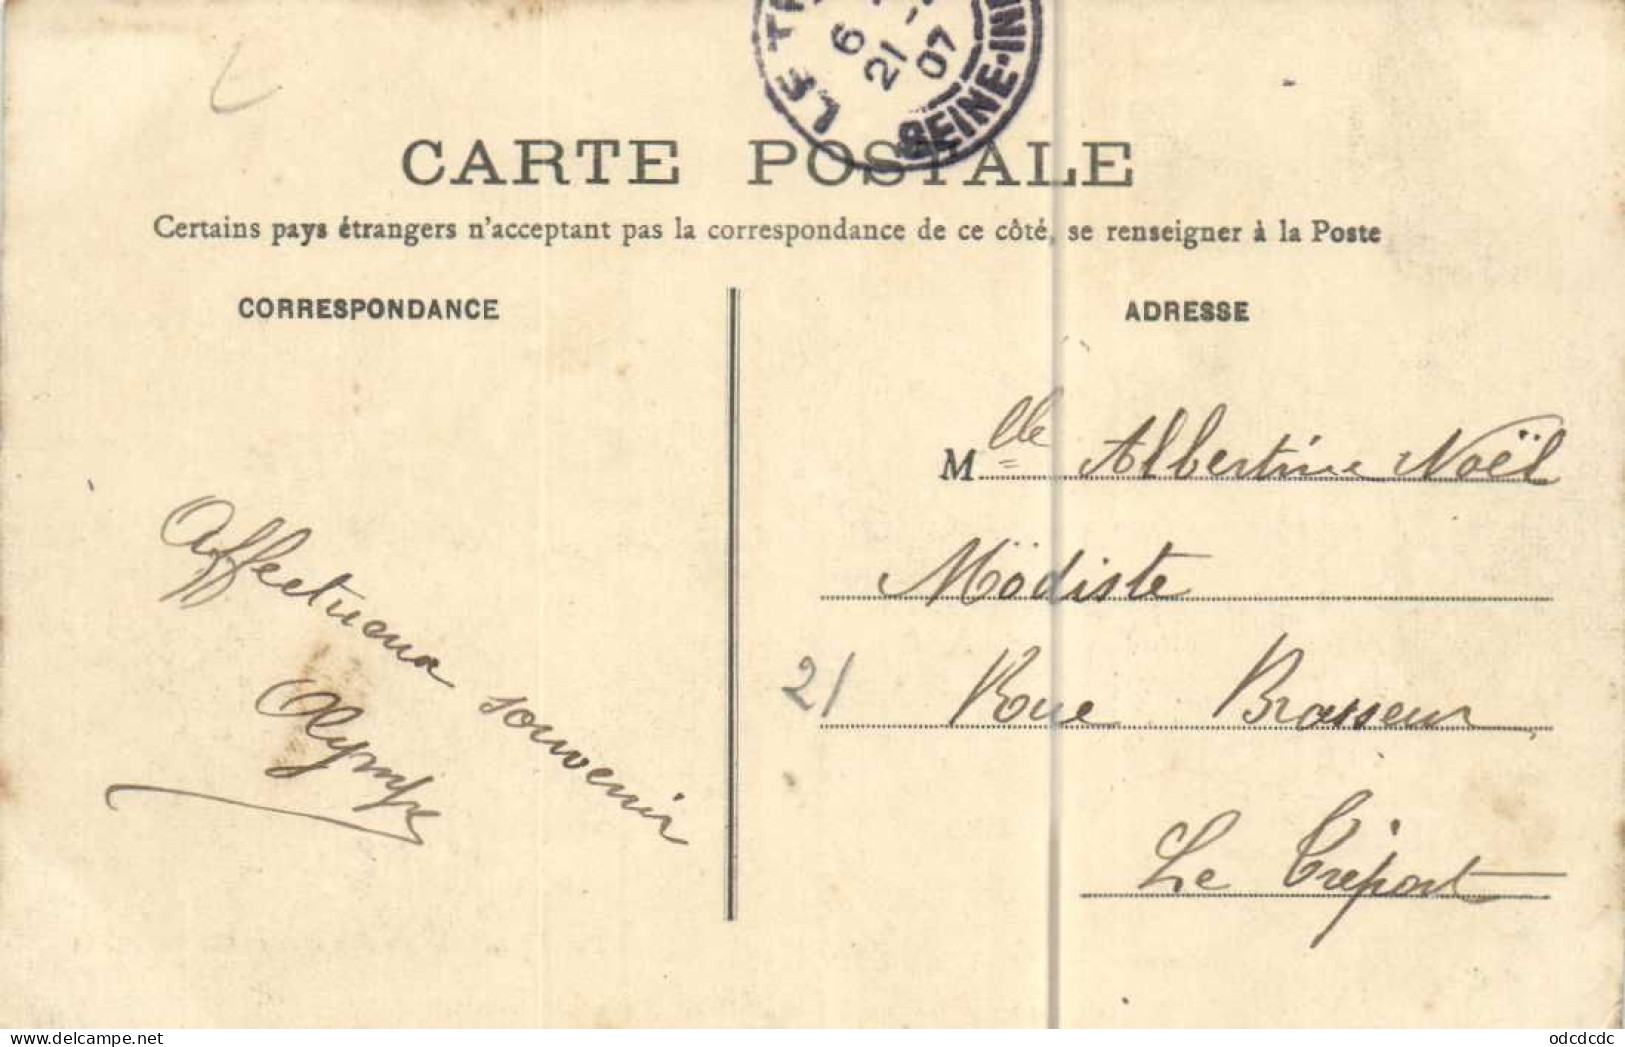 LE TR
6
21
07
SEINE-IN
CARTE POSTALE
Certains pays étrangers n'acceptant pas la correspondance de ce côté, se renseigner à la Poste
CORRESPONDANCE
ADRESSE
Affectueux souvenir
Olympe
Mlle Albertine Noël
Modiste
21 Rue Brasseur
Le Tréport
odcdcdc